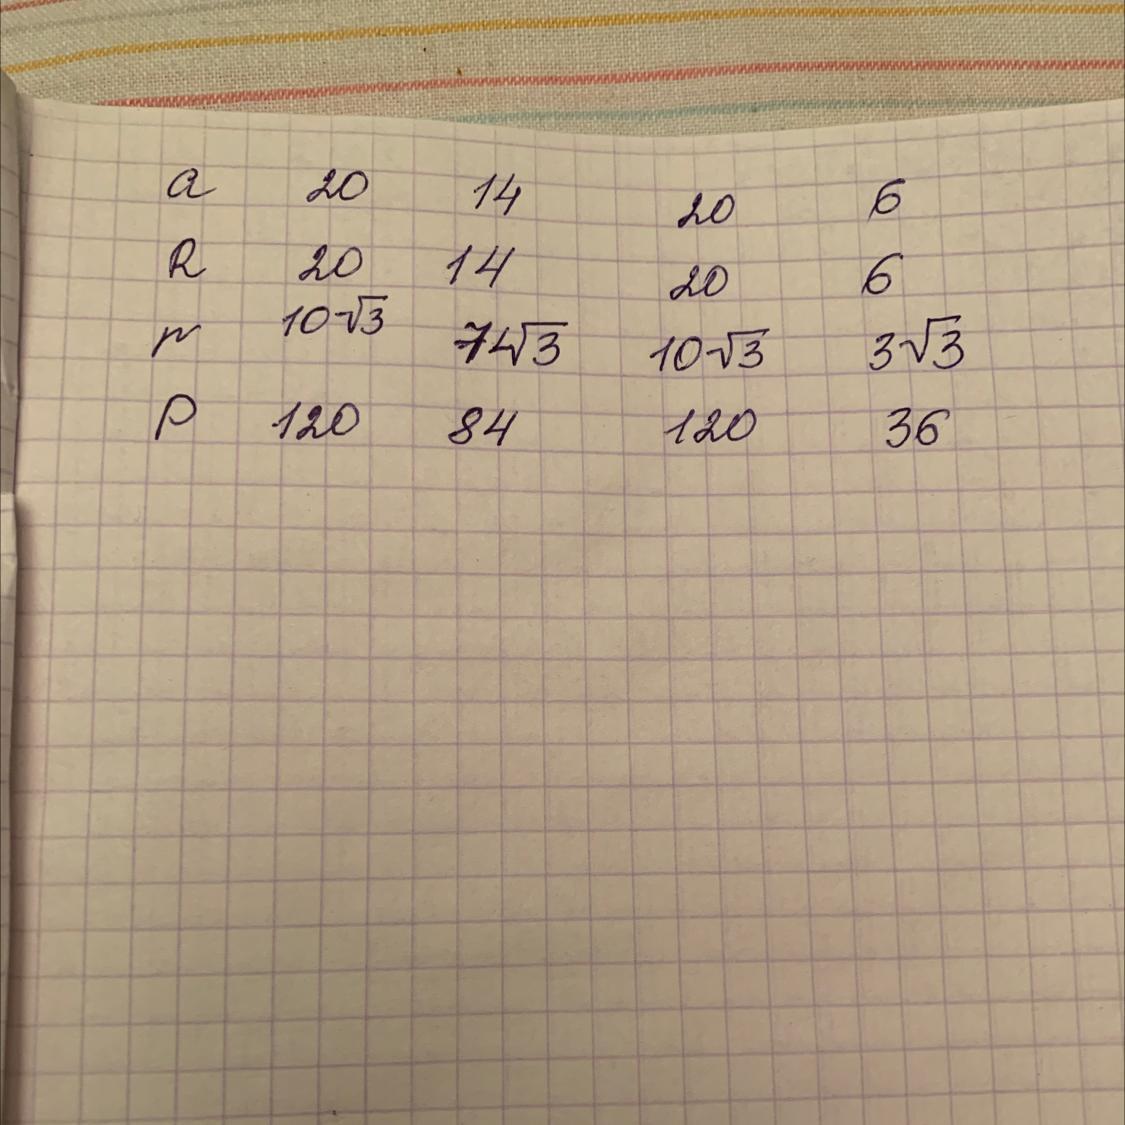 a 20 14 20 6
R 20 14 20 6
r 10√3 7√3 10√3 3√3
P 120 84 120 36